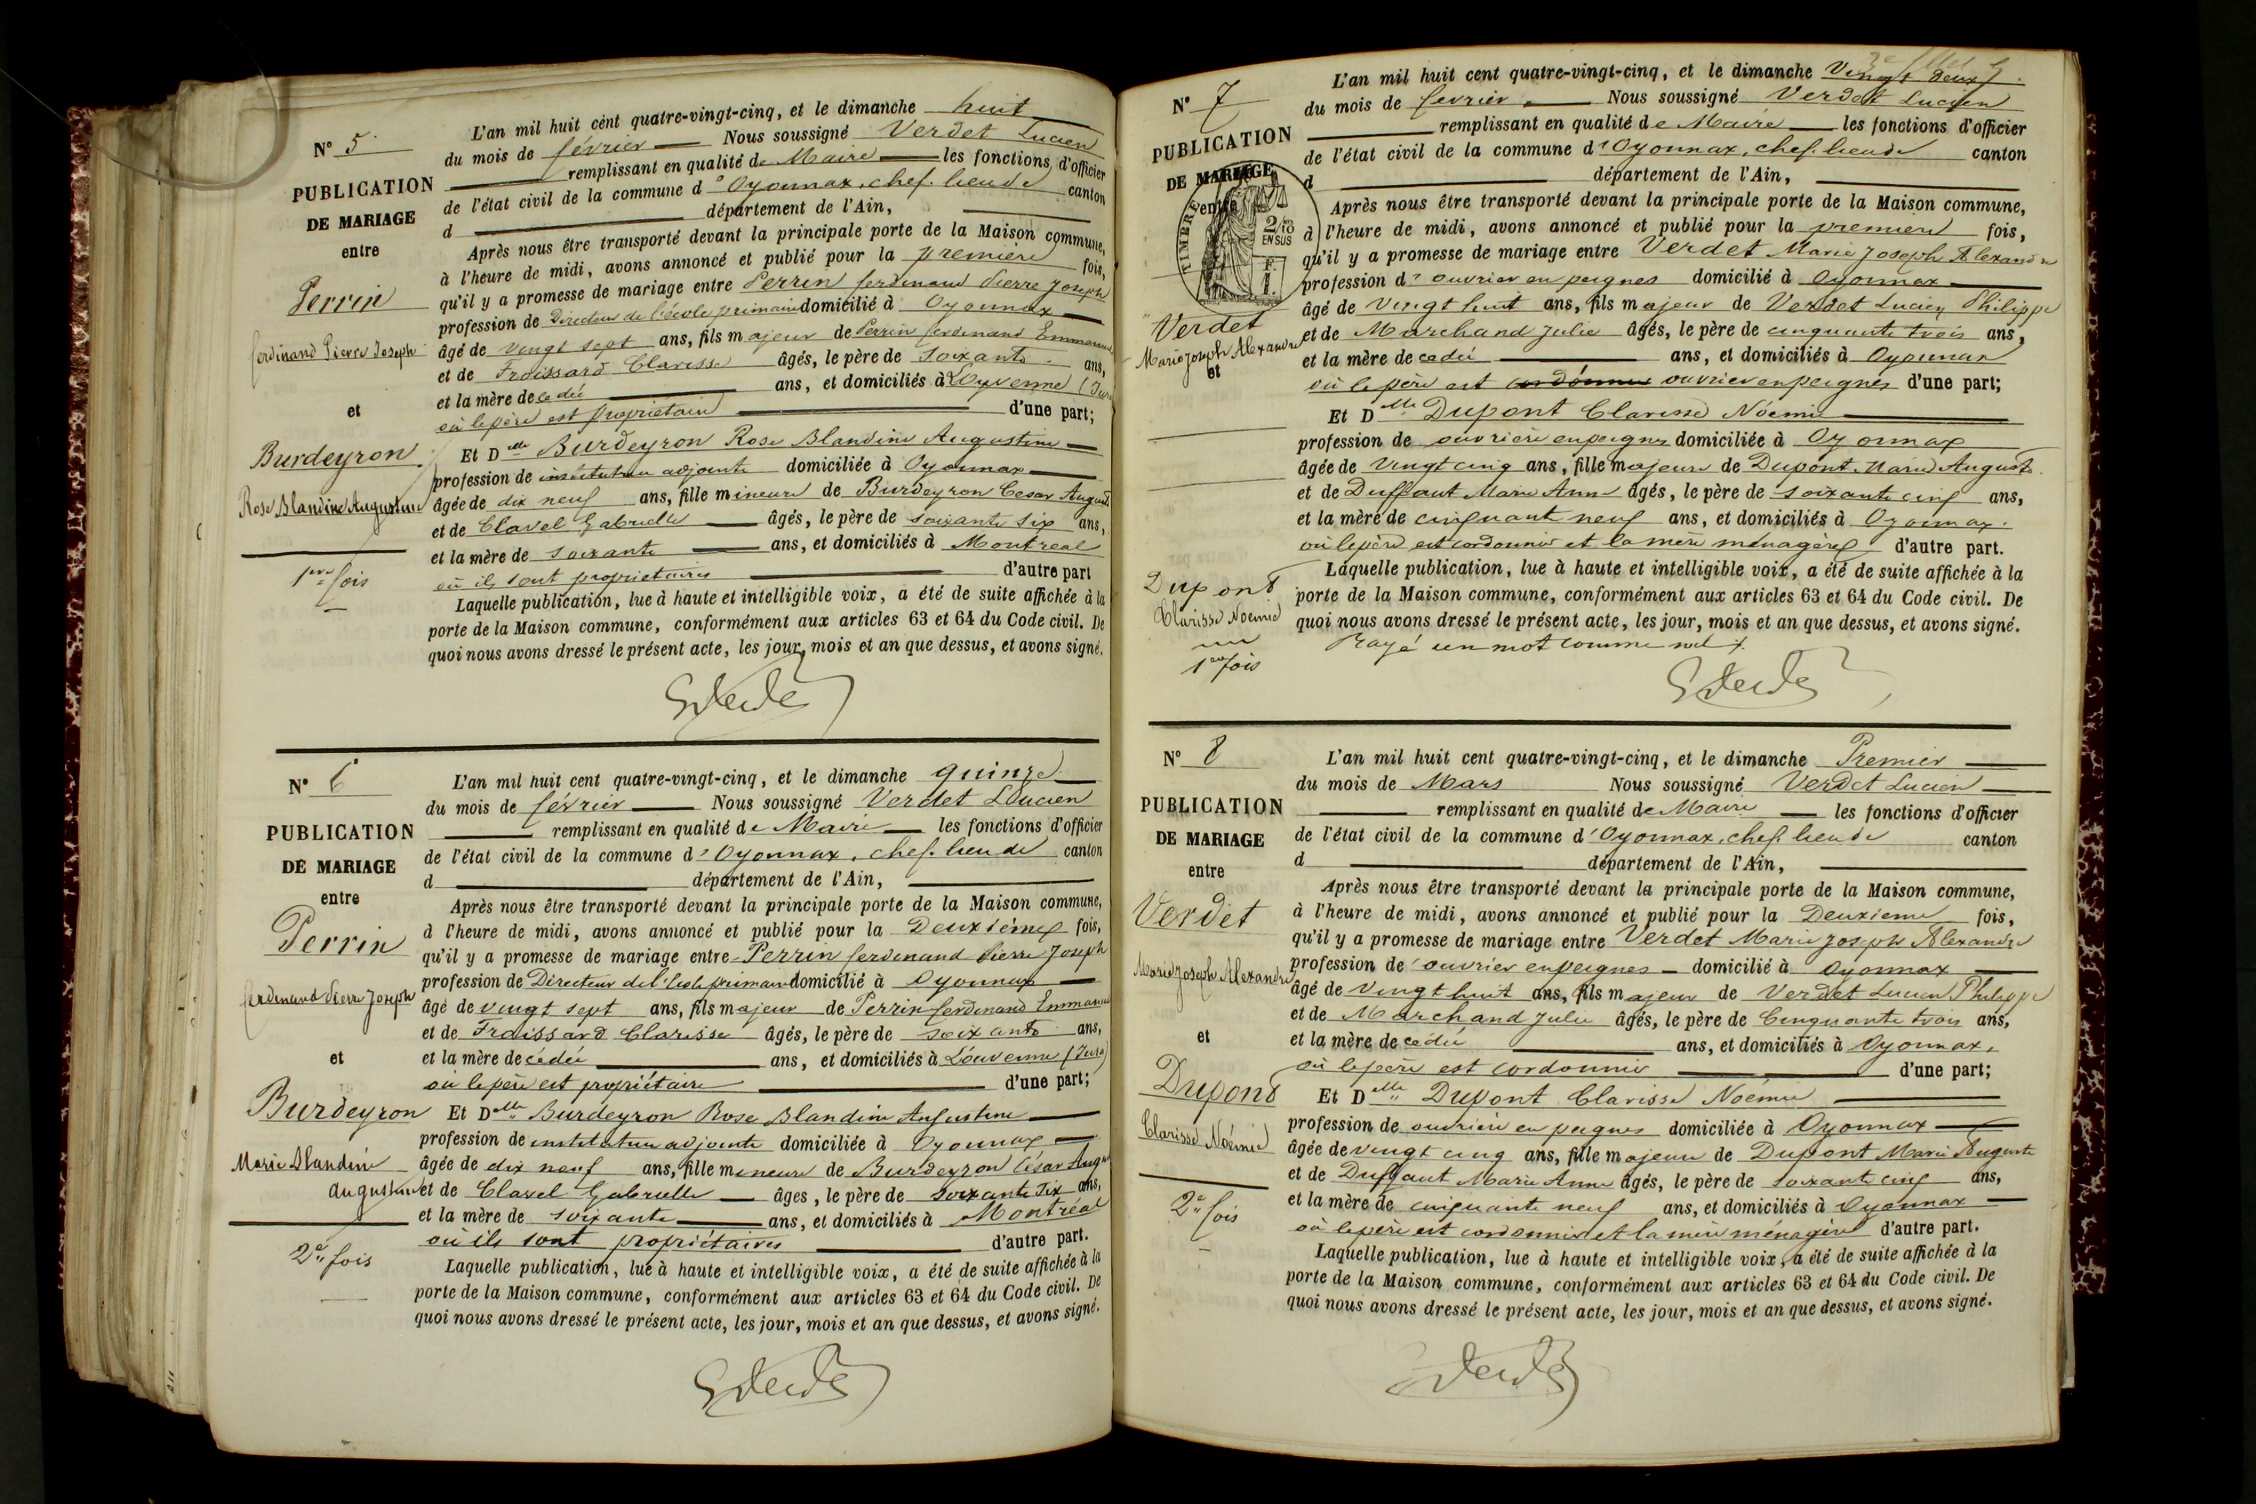 N° 5
PUBLICATION
DE MARIAGE
entre
Perrin
ferdinand Pierre Joseph
et
Burdeyron
Rose Blandine Augustine
1ère fois
L'an mil huit cent quatre-vingt-cinq, et le dimanche huit
du mois de février Nous soussigné Verdet Lucien
remplissant en qualité de Maire les fonctions d'officier
de l'état civil de la commune d'Oyonnax, chef-lieu de canton
d département de l'Ain,
Après nous être transporté devant la principale porte de la Maison commune,
à l'heure de midi, avons annoncé et publié pour la première fois,
qu'il y a promesse de mariage entre Perrin ferdinand Pierre Joseph
profession de Directeur de l'école primaire domicilié à Oyonnax
âgé de vingt sept ans, fils majeur de Perrin ferdinand Emmanuel
et de Froissard Clarisse âgés, le père de soixante ans,
et la mère decedée ans, et domiciliés à Louvenne (Jura
où le père est propriétaire d'une part;
Et Delle Burdeyron Rose Blandine Augustine
profession de institutrice adjointe domiciliée à Oyonnax
âgée de dix neuf ans, fille mineure de Burdeyron Cesar August
et de Clavel Gabrielle âgés, le père de soixante six ans,
et la mère de soixante ans, et domiciliés à Montreal
où ils sont propriétaires d'autre part
Laquelle publication, lue à haute et intelligible voix, a été de suite affichée à la
porte de la Maison commune, conformément aux articles 63 et 64 du Code civil. De
quoi nous avons dressé le présent acte, les jour, mois et an que dessus, et avons signé.
N° 6
PUBLICATION
DE MARIAGE
entre
Perrin
ferdinand Pierre Joseph
et
Burdeyron
Marie Blandine
Augustine
2e fois
L'an mil huit cent quatre-vingt-cinq, et le dimanche quinze
du mois de février Nous soussigné Verdet Lucien
remplissant en qualité de Maire les fonctions d'officier
de l'état civil de la commune d'Oyonnax, chef-lieu de canton
d département de l'Ain,
Après nous être transporté devant la principale porte de la Maison commune,
à l'heure de midi, avons annoncé et publié pour la Deuxième fois,
qu'il y a promesse de mariage entre Perrin ferdinand Pierre Joseph
profession de Directeur de l'école primaire domicilié à Oyonnax
âgé de vingt sept ans, fils majeur de Perrin ferdinand Emmanuel
et de Froissard Clarisse âgés, le père de soixante ans,
et la mère decédée ans, et domiciliés à Louvenne (Jura)
où le père est propriétaire d'une part;
Et Delle Burdeyron Rose Blandine Augustine
profession de institutrice adjointe domiciliée à Oyonnax
âgée de dix neuf ans, fille mineure de Burdeyron César Augu
et de Clavel Gabrielle âges, le père de soixante six ans,
et la mère de soixante ans, et domiciliés à Montréal
où ils sont propriétaires d'autre part.
Laquelle publication, lue à haute et intelligible voix, a été de suite affichée à la
porte de la Maison commune, conformément aux articles 63 et 64 du Code civil. De
quoi nous avons dressé le présent acte, les jour, mois et an que dessus, et avons signé.
N° 7
PUBLICATION
DE MARIAGE
entre
TIMBRE
2/10
EN SUS
F.
1.
Verdet
Marie Joseph Alexandre
et
Dupont
Clarisse Noémie
1ère fois
L'an mil huit cent quatre-vingt-cinq, et le dimanche Vingt deux
du mois de fevrier Nous soussigné Verdet Lucien
remplissant en qualité de Maire les fonctions d'officier
de l'état civil de la commune d'Oyonnax, chef-lieu de canton
d département de l'Ain,
Après nous être transporté devant la principale porte de la Maison commune,
à l'heure de midi, avons annoncé et publié pour la première fois,
qu'il y a promesse de mariage entre Verdet Marie Joseph Alexandre
profession d' ouvrier en peignes domicilié à Oyonnax
âgé de vingt huit ans, fils majeur de Verdet Lucien Philippe
et de Marchand Julie âgés, le père de cinquante trois ans,
et la mère decedée ans, et domiciliés à Oyonnax
où le père est cordonnier ouvrier en peignes d'une part;
Et Delle Dupont Clarisse Noémie
profession de ouvrière en peignes domiciliée à Oyonnax
âgée de vingt cinq ans, fille majeure de Dupont Marie Auguste
et de Duffaut Marie Anne âgés, le père de soixante cinq ans,
et la mère de cinquante neuf ans, et domiciliés à Oyonnax.
où le père est cordonnier et la mère ménagère d'autre part.
Laquelle publication, lue à haute et intelligible voix, a été de suite affichée à la
porte de la Maison commune, conformément aux articles 63 et 64 du Code civil. De
quoi nous avons dressé le présent acte, les jour, mois et an que dessus, et avons signé.
Rayé un mot comme nul
N° 8
PUBLICATION
DE MARIAGE
entre
Verdet
Marie Joseph Alexandre
et
Dupont
Clarisse Noémie
2e fois
L'an mil huit cent quatre-vingt-cinq, et le dimanche Premier
du mois de Mars Nous soussigné Verdet Lucien
remplissant en qualité de Maire les fonctions d'officier
de l'état civil de la commune d'Oyonnax, chef-lieu de canton
d département de l'Ain,
Après nous être transporté devant la principale porte de la Maison commune,
à l'heure de midi, avons annoncé et publié pour la Deuxieme fois,
qu'il y a promesse de mariage entre Verdet Marie Joseph Alexandre
profession de ouvrier en peignes domicilié à Oyonnax
âgé de vingt huit ans, fils majeur de Verdet Lucien Philippe
et de Marchand Julie âgés, le père de Cinquante trois ans,
et la mère decédée ans, et domiciliés à Oyonnax,
où le père est cordonnier d'une part;
Et Delle Dupont Clarisse Noémie
profession de ouvrière en peignes domiciliée à Oyonnax
âgée de vingt cinq ans, fille majeure de Dupont Marie Auguste
et de Duffaut Marie Anne âgés, le père de soixante cinq ans,
et la mère de cinquante neuf ans, et domiciliés à Oyonnax
où le père est cordonnier et la mère ménagère d'autre part.
Laquelle publication, lue à haute et intelligible voix, a été de suite affichée à la
porte de la Maison commune, conformément aux articles 63 et 64 du Code civil. De
quoi nous avons dressé le présent acte, les jour, mois et an que dessus, et avons signé.